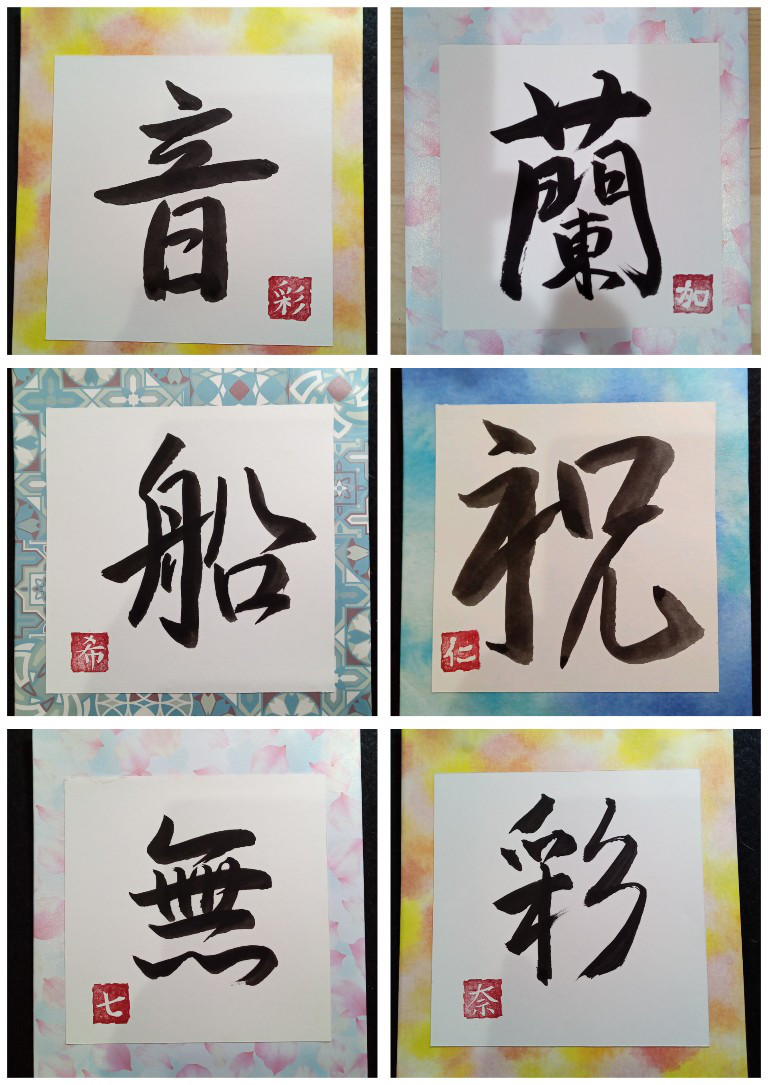 音
彩
蘭
加
船
希
祝
仁
無
七
彩
奈